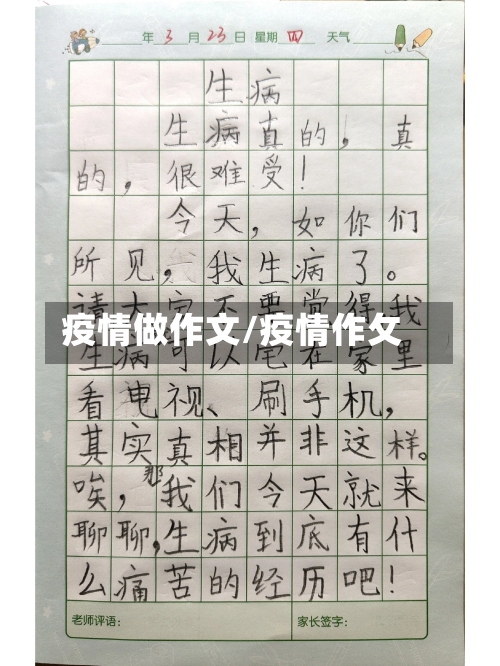 年3月23日 星期 四 天气
生病
生病真的，真
的，很难受！
今天，如你们
所见，我生病了。
请大家不要觉得我
疫情做作文/疫情作文
生病可以宅在家里
看电视、刷手机，
其实真相并非这样。
唉，那我们今天就来
聊聊，生病到底有什
么痛苦的经历吧！
老师评语： 家长签字：